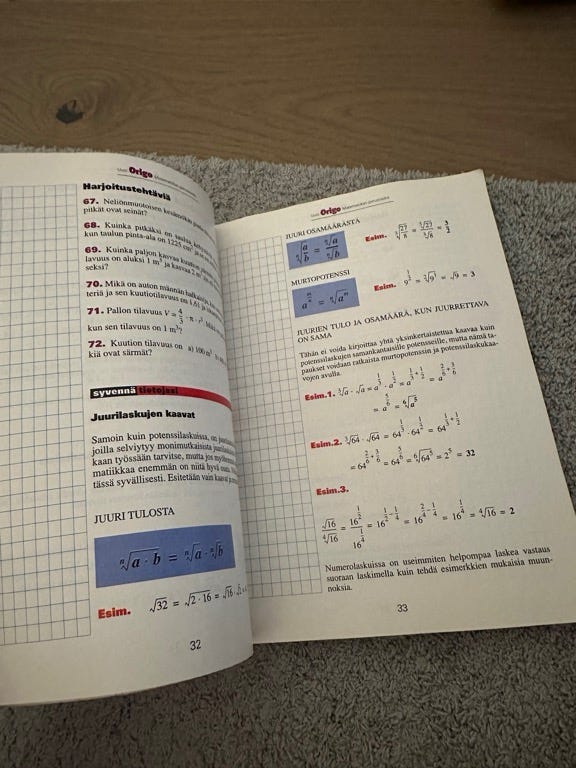 Uusi Origo Matematiikan perustaidot
Harjoitustehtäviä
67. Neliönmuotoisen
pitkät ovat seinät?
68. Kuinka pitkäksi on
kun taulun pinta-ala on 1225
69. Kuinka paljon kasvaa kuution
lavuus on aluksi 1 m³ ja kasvaa 2 m³
seksi?
70. Mikä on auton männän halkaisija,
teriä ja sen kuutiotilavuus on 1,61
71. Pallon tilavuus V = 4/3 · π · r³. Mikä
kun sen tilavuus on 1 m³?
72. Kuution tilavuus on a) 100 m³
kiä ovat särmät?
syvennä tietojasi
Juurilaskujen kaavat
Samoin kuin potenssilaskuissa, on
joilla selviytyy monimutkaisista
kaan työssään tarvitse, mutta jos
matiikkaa enemmän on niitä hyvä
tässä syvällisesti. Esitetään vain kaavat
JUURI TULOSTA
ⁿ√(a · b) = ⁿ√a · ⁿ√b
Esim. √32 = √(2 · 16) = √16 ·
32
Uusi Origo Matematiikan perustaidot
JUURI OSAMÄÄRÄSTÄ
ⁿ√(a/b) = ⁿ√a / ⁿ√b
Esim. ³√(27/8) = ³√27 / ³√8 = 3/2
MURTOPOTENSSI
a^(m/n) = ⁿ√(aᵐ)
9^(1/2) = ²√(9¹) = √9 = 3
JUURIEN TULO JA OSAMÄÄRÄ, KUN JUURRETTAVA
ON SAMA
Tähän ei voida kirjoittaa yhtä yksinkertaistettua kaavaa kuin
potenssilaskujen samankantaisille potensseille, mutta nämä ta-
paukset voidaan ratkaista murtopotenssin ja potenssilaskukaa-
vojen avulla.
Esim.1. ³√a · √a = a^(1/3) · a^(1/2) = a^(1/3 + 1/2) = a^(2/6 + 3/6)
= a^(5/6) = ⁶√(a⁵)
Esim.2. ³√64 · √64 = 64^(1/3) · 64^(1/2) = 64^(1/3 + 1/2)
= 64^(2/6 + 3/6) = 64^(5/6) = ⁶√(64⁵) = 2⁵ = 32
Esim.3.
√16 / ⁴√16 = 16^(1/2) / 16^(1/4) = 16^(1/2 - 1/4) = 16^(2/4 - 1/4) = 16^(1/4) = ⁴√16 = 2
Numerolaskuissa on useimmiten helpompaa laskea vastaus
suoraan laskimella kuin tehdä esimerkkien mukaisia muun-
noksia.
33